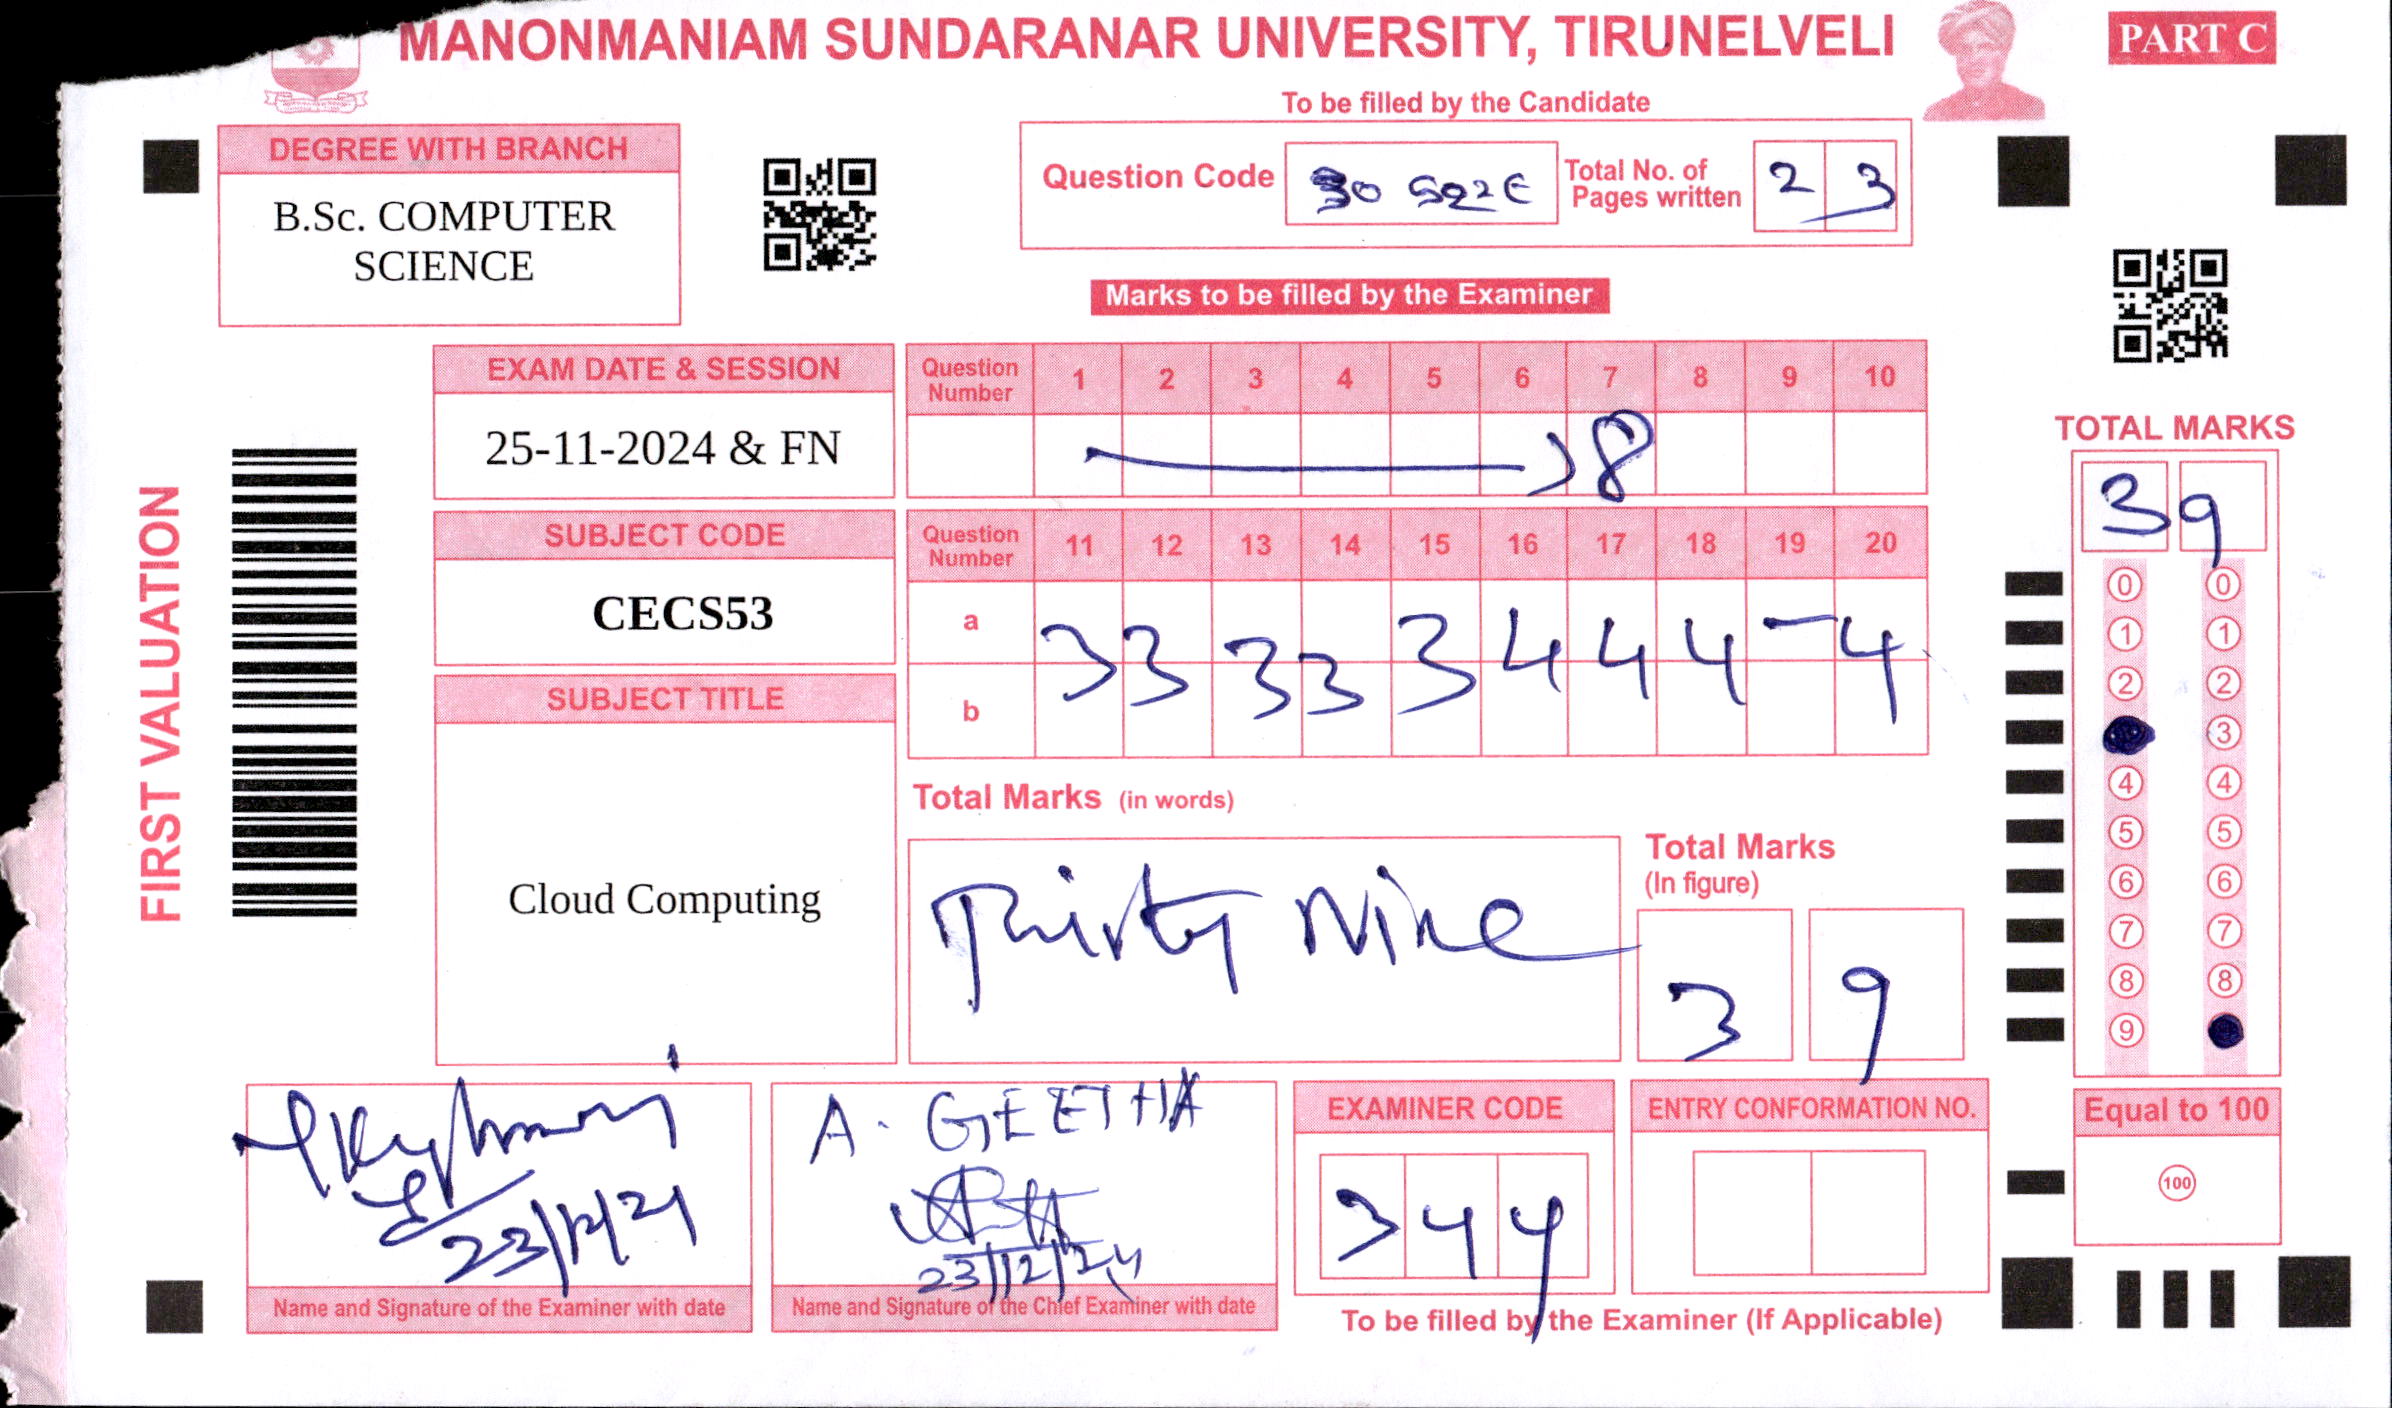 MANONMANIAM SUNDARANAR UNIVERSITY, TIRUNELVELI
PART C
To be filled by the Candidate
DEGREE WITH BRANCH
B.Sc. COMPUTER
SCIENCE
Question Code
Total No. of
Pages written
2 3
Marks to be filled by the Examiner
EXAM DATE & SESSION
25-11-2024 & FN
SUBJECT CODE
CECS53
SUBJECT TITLE
Cloud Computing
FIRST VALUATION
Question Number 1 2 3 4 5 6 7 8 9 10
8
Question Number 11 12 13 14 15 16 17 18 19 20
a
b
3 3 3 3 3 4 4 4 - 4
Total Marks (in words)
Thirty Nine
Total Marks
(In figure)
3 9
TOTAL MARKS
3 9
0 0
1 1
2 2
3
4 4
5 5
6 6
7 7
8 8
9
Equal to 100
100
23/12/24
Name and Signature of the Examiner with date
A. GEETHA
23/12/24
Name and Signature of the Chief Examiner with date
EXAMINER CODE
3 4 4
ENTRY CONFORMATION NO.
To be filled by the Examiner (If Applicable)